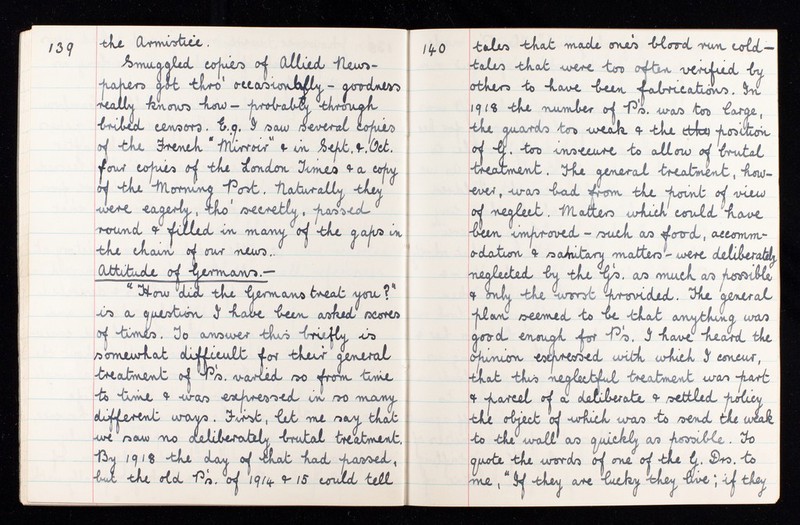 139
the Armistice.
Smuggled copies of Allied News-
papers got thro' occasionally – goodness
really knows how – probably through
bribed censors. E.g. I saw several copies
of the French "Mirroir" & in Sept. & Oct.
four copies of the London Times & a copy
of the Morning Post. Naturally they
were eagerly, tho' secretly, passed
round & filled in many of the gaps in
the chain of our news..
Attitude of Germans.–
"How did the Germans treat you?"
is a question I have been asked scores
of times. To answer this briefly is
somewhat difficult for their general
treatment of P's. varied so from time
to time & was expressed in so many
different ways. First, let me say that
we saw no deliberately brutal treatment.
By 1918 the day of that had passed,
but the old P's. of 1914 & 15 could tell
140
tales that made one's blood run cold –
tales that were too often verified by
others to have been fabrications. In
1918 the number of P's. was too large,
the guards too weak & the position
of G. too insecure to allow of brutal
treatment. The general treatment, how-
ever, was bad from the point of view
of neglect. Matters which could have
been improved – such as food, accomm-
odation & sanitary matters – were deliberately
neglected by the G's. as much as possible
& only the worst provided. The general
plan seemed to be that anything was
good enough for P's. I have heard the
opinion expressed with which I concur,
that this neglectful treatment was part
& parcel of a deliberate & settled policy
the object of which was to send the weak
to the wall as quickly as possible. To
quote the words of one of the G. Drs. to
me, "If they are lucky they live; if they